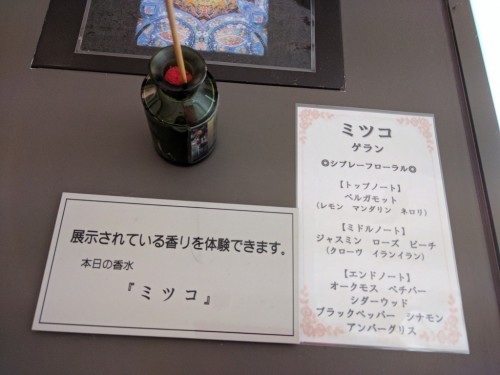 展示されている香りを体験できます。
本日の香水
『ミツコ』
ミツコ
ゲラン
✪シプレーフローラル✪
【トップノート】
ベルガモット
(レモン マンダリン ネロリ)
【ミドルノート】
ジャスミン ローズ ピーチ
(クローヴ イランイラン)
【エンドノート】
オークモス ベチバー
シダーウッド
ブラックペッパー シナモン
アンバーグリス